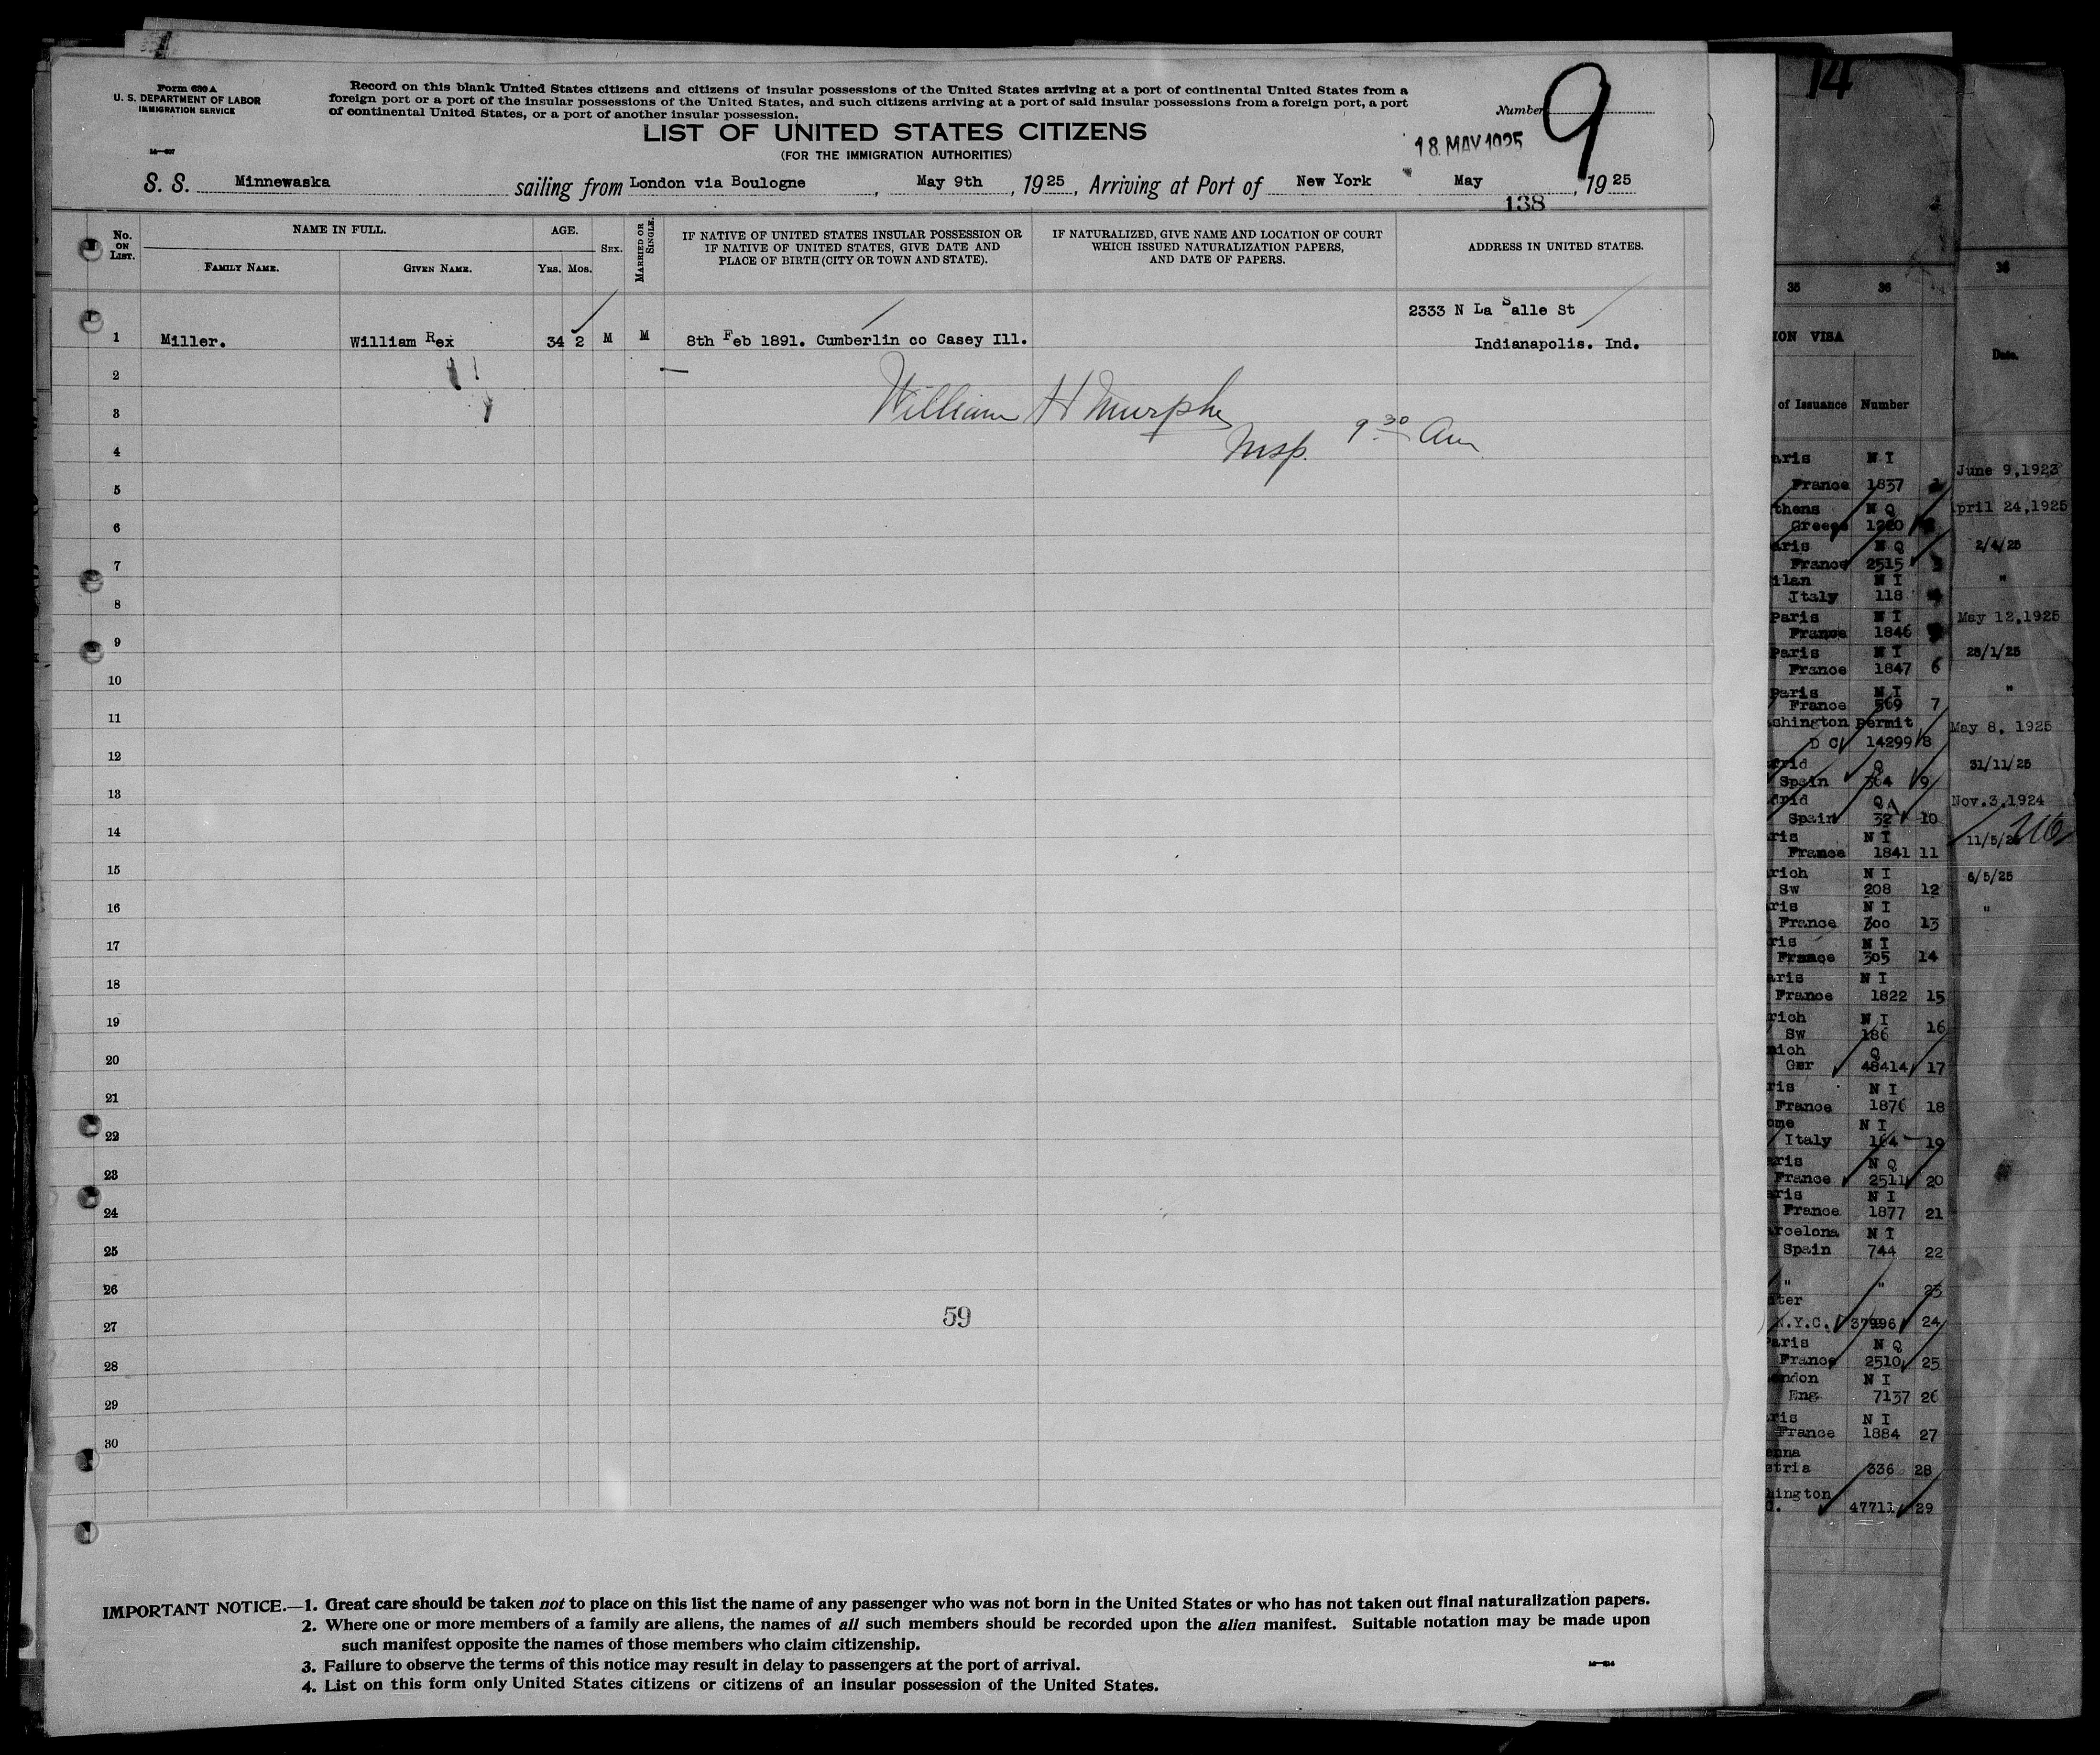 Form 630 A
U. S. DEPARTMENT OF LABOR
IMMIGRATION SERVICE
Record on this blank United States citizens and citizens of insular possessions of the United States arriving at a port of continental United States from a
foreign port or a port of the insular possessions of the United States, and such citizens arriving at a port of said insular possessions from a foreign port, a port
of continental United States, or a port of another insular possession.
Number 9
LIST OF UNITED STATES CITIZENS
(FOR THE IMMIGRATION AUTHORITIES)
18 MAY 1925
S. S. Minnewaska sailing from London via Boulogne, May 9th, 1925, Arriving at Port of New York May, 1925
138
No. ON LIST.
NAME IN FULL.
FAMILY NAME.
GIVEN NAME.
AGE.
YRS. MOS.
SEX.
MARRIED OR SINGLE.
IF NATIVE OF UNITED STATES INSULAR POSSESSION OR
IF NATIVE OF UNITED STATES, GIVE DATE AND
PLACE OF BIRTH (CITY OR TOWN AND STATE).
IF NATURALIZED, GIVE NAME AND LOCATION OF COURT
WHICH ISSUED NATURALIZATION PAPERS,
AND DATE OF PAPERS.
ADDRESS IN UNITED STATES.
2333 N La Salle St
1 Miller. William Rex 34 2 M M 8th Feb 1891. Cumberlin co Casey Ill. Indianapolis. Ind.
2
3
William H Murphy
Insp. 9 30 Am
4
5
6
7
8
9
10
11
12
13
14
15
16
17
18
19
20
21
22
23
24
25
26
27
59
28
29
30
IMPORTANT NOTICE.—1. Great care should be taken not to place on this list the name of any passenger who was not born in the United States or who has not taken out final naturalization papers.
2. Where one or more members of a family are aliens, the names of all such members should be recorded upon the alien manifest. Suitable notation may be made upon
such manifest opposite the names of those members who claim citizenship.
3. Failure to observe the terms of this notice may result in delay to passengers at the port of arrival.
4. List on this form only United States citizens or citizens of an insular possession of the United States.
14
35 36
ION VISA
of Issuance Number
aris N I
France 1837
thens N Q
Greece 1220
aris N Q
France 2515
ilan N I
Italy 118
Paris N I
France 1846
Paris N I
France 1847 6
Paris N I
France 569 7
shington permit
D C 14299 8
Spain 364 9
drid Q A
Spain 32 10
ris N I
France 1841 11
rich N I
Sw 208 12
ris N I
France 300 13
ris N I
France 305 14
aris N I
France 1822 15
rich N I
Sw 186 16
nich Q
Ger 48414 17
ris N I
France 1876 18
ome N I
Italy 164 19
aris N Q
France 2511 20
aris N I
France 1877 21
rcelona N I
Spain 744 22
" " 23
N.Y.C. 37996 24
Paris N Q
France 2510 25
ondon N I
Eng 7137 26
ris N I
France 1884 27
enna
stria 336 28
hington
47711 29
36
Date.
June 9,1923
pril 24,1925
2/4/25
"
May 12,1925
28/1/25
"
May 8, 1925
31/11/25
Nov.3,1924
11/5/25
6/5/25
"